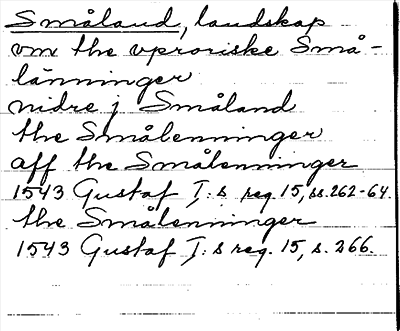 Småland, landskap
vm the vproriske Små-
länninger
nidre j Småland
the Smålenninger
aff the Smålenninger
1543 Gustaf I:s reg. 15, ss. 262-64.
the Smålenninger
1543 Gustaf I:s reg. 15, s. 266.